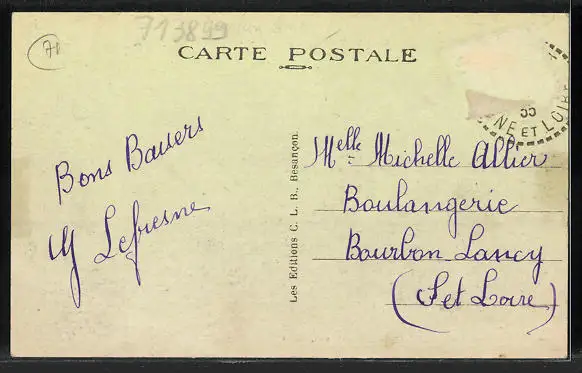 713899
71
CARTE POSTALE
55
NE ET LOIRE
Bons Baisers
Lefresne
Les Editions C. L. B., Besançon.
Melle Michelle Allier
Boulangerie
Bourbon Lancy
(S et Loire)